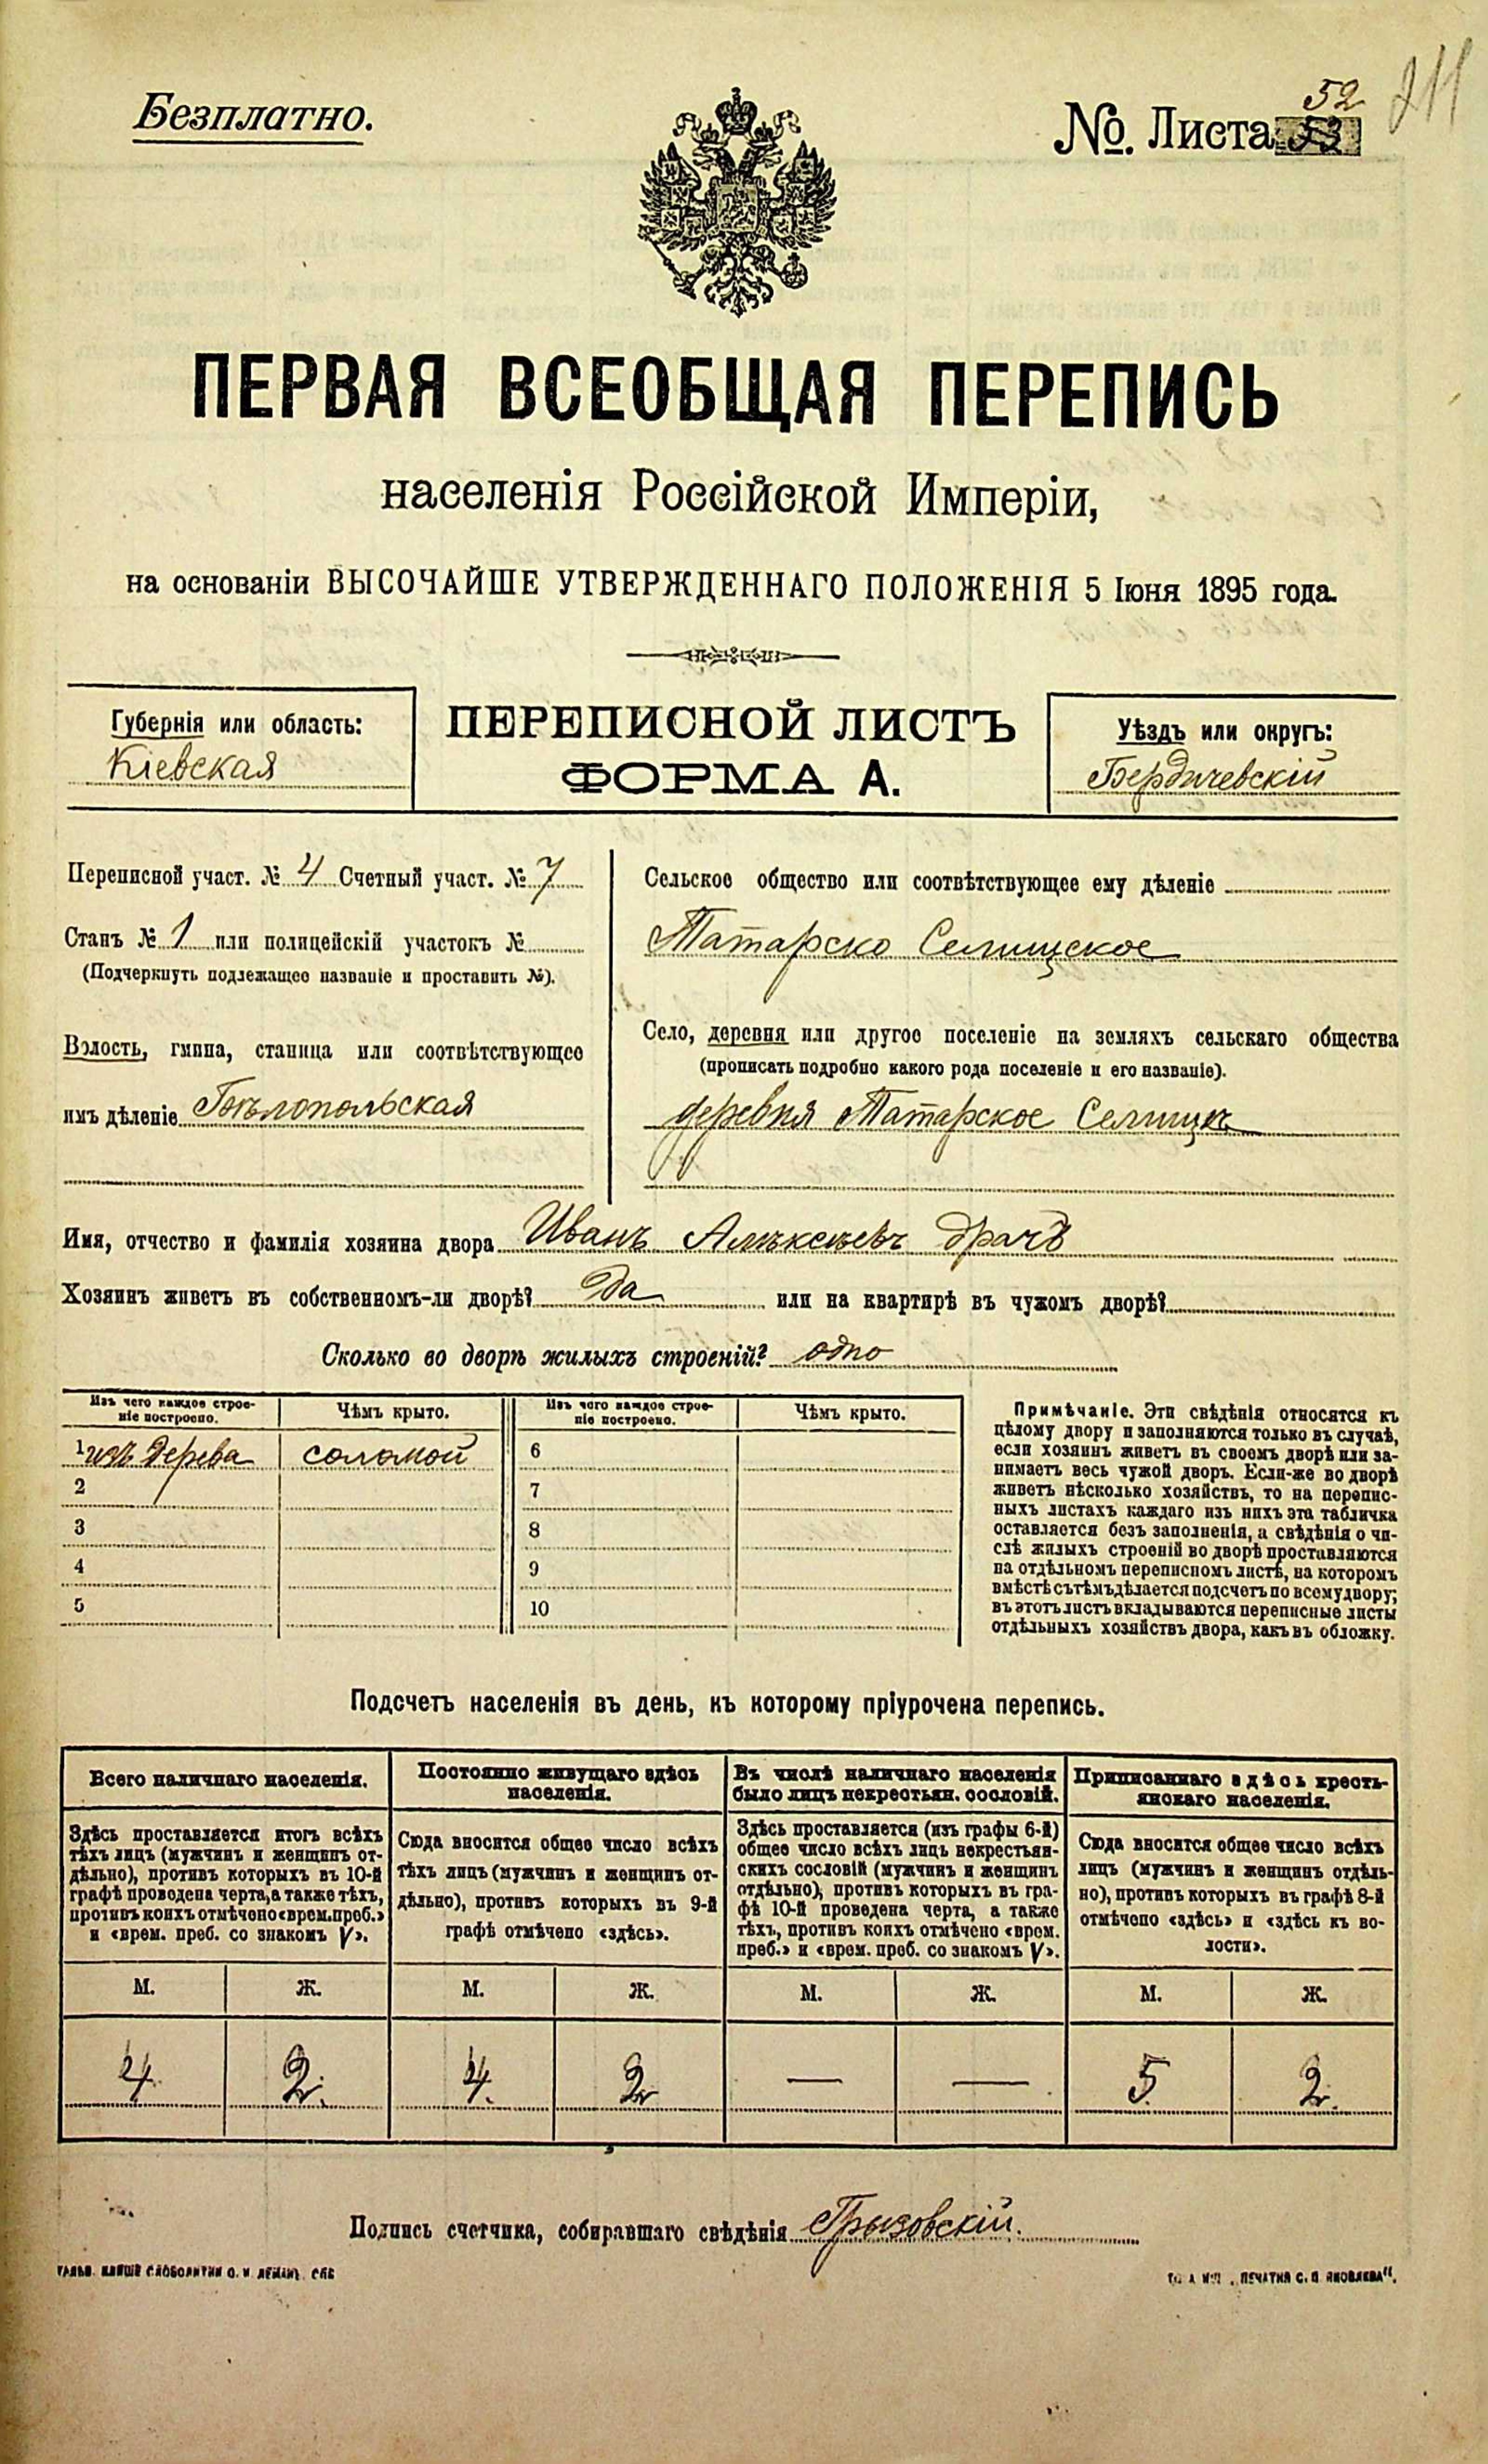 Безплатно.
№. Листа 52
211
ПЕРВАЯ ВСЕОБЩАЯ ПЕРЕПИСЬ
населенія Россійской Имперіи,
на основаніи ВЫСОЧАЙШЕ УТВЕРЖДЕННАГО ПОЛОЖЕНІЯ 5 Іюня 1895 года.
Губернія или область:
Кіевская
ПЕРЕПИСНОЙ ЛИСТЪ
ФОРМА А.
Уѣздъ или округъ:
Бердичевскій
Переписной участ. № 4 Счетный участ. № 7
Станъ № 1 или полицейскій участокъ №
(Подчеркнуть подлежащее названіе и проставить №).
Волость, гмина, станица или соотвѣтствующее
имъ дѣленіе Бѣлопольская
Сельское общество или соотвѣтствующее ему дѣленіе
Татарско Селищское
Село, деревня или другое поселеніе на земляхъ сельскаго общества
(прописать подробно какого рода поселеніе и его названіе).
деревня Татарское Селище
Имя, отчество и фамилія хозяина двора Иванъ Алѣксѣевъ Драчъ
Хозяинъ живетъ въ собственномъ-ли дворѣ? Да или на квартирѣ въ чужомъ дворѣ?
Сколько во дворѣ жилыхъ строеній? одно
Изъ чего каждое строе-
ніе построено.
Чѣмъ крыто.
Изъ чего каждое строе-
ніе построено.
Чѣмъ крыто.
1 изъ дерева соломой 6
2 7
3 8
4 9
5 10
Примѣчаніе. Эти свѣдѣнія относятся къ
цѣлому двору и заполняются только въ случаѣ,
если хозяинъ живетъ въ своемъ дворѣ или за-
нимаетъ весь чужой дворъ. Если-же во дворѣ
живетъ нѣсколько хозяйствъ, то на перепис-
ныхъ листахъ каждаго изъ нихъ эта табличка
оставляется безъ заполненія, а свѣдѣнія о чи-
слѣ жилыхъ строеній во дворѣ проставляются
на отдѣльномъ переписномъ листѣ, на которомъ
вмѣстѣ съ тѣмъ дѣлается подсчетъ по всему двору;
въ этотъ листъ вкладываются переписные листы
отдѣльныхъ хозяйствъ двора, какъ въ обложку.
Подсчетъ населенія въ день, къ которому пріурочена перепись.
Всего наличнаго населенія.
Здѣсь проставляется итогъ всѣхъ
тѣхъ лицъ (мужчинъ и женщинъ от-
дѣльно), противъ которыхъ въ 10-й
графѣ проведена черта, а также тѣхъ,
противъ коихъ отмѣчено «врем. преб.»
и «врем. преб. со знакомъ V».
Постоянно живущаго здѣсь
населенія.
Сюда вносится общее число всѣхъ
тѣхъ лицъ (мужчинъ и женщинъ от-
дѣльно), противъ которыхъ въ 9-й
графѣ отмѣчено «здѣсь».
Въ числѣ наличнаго населенія
было лицъ некрестьян. сословій.
Здѣсь проставляется (изъ графы 6-й)
общее число всѣхъ лицъ некрестьян-
скихъ сословій (мужчинъ и женщинъ
отдѣльно), противъ которыхъ въ гра-
фѣ 10-й проведена черта, а также
тѣхъ, противъ коихъ отмѣчено «врем.
преб.» и «врем. преб. со знакомъ V».
Приписаннаго здѣсь кресть-
янскаго населенія.
Сюда вносится общее число всѣхъ
лицъ (мужчинъ и женщинъ отдѣль-
но), противъ которыхъ въ графѣ 8-й
отмѣчено «здѣсь» и «здѣсь къ во-
лости».
М. Ж. М. Ж. М. Ж. М. Ж.
4. 2. 4. 2 — — 5. 2.
Подпись счетчика, собиравшаго свѣдѣнія Грызовскій.